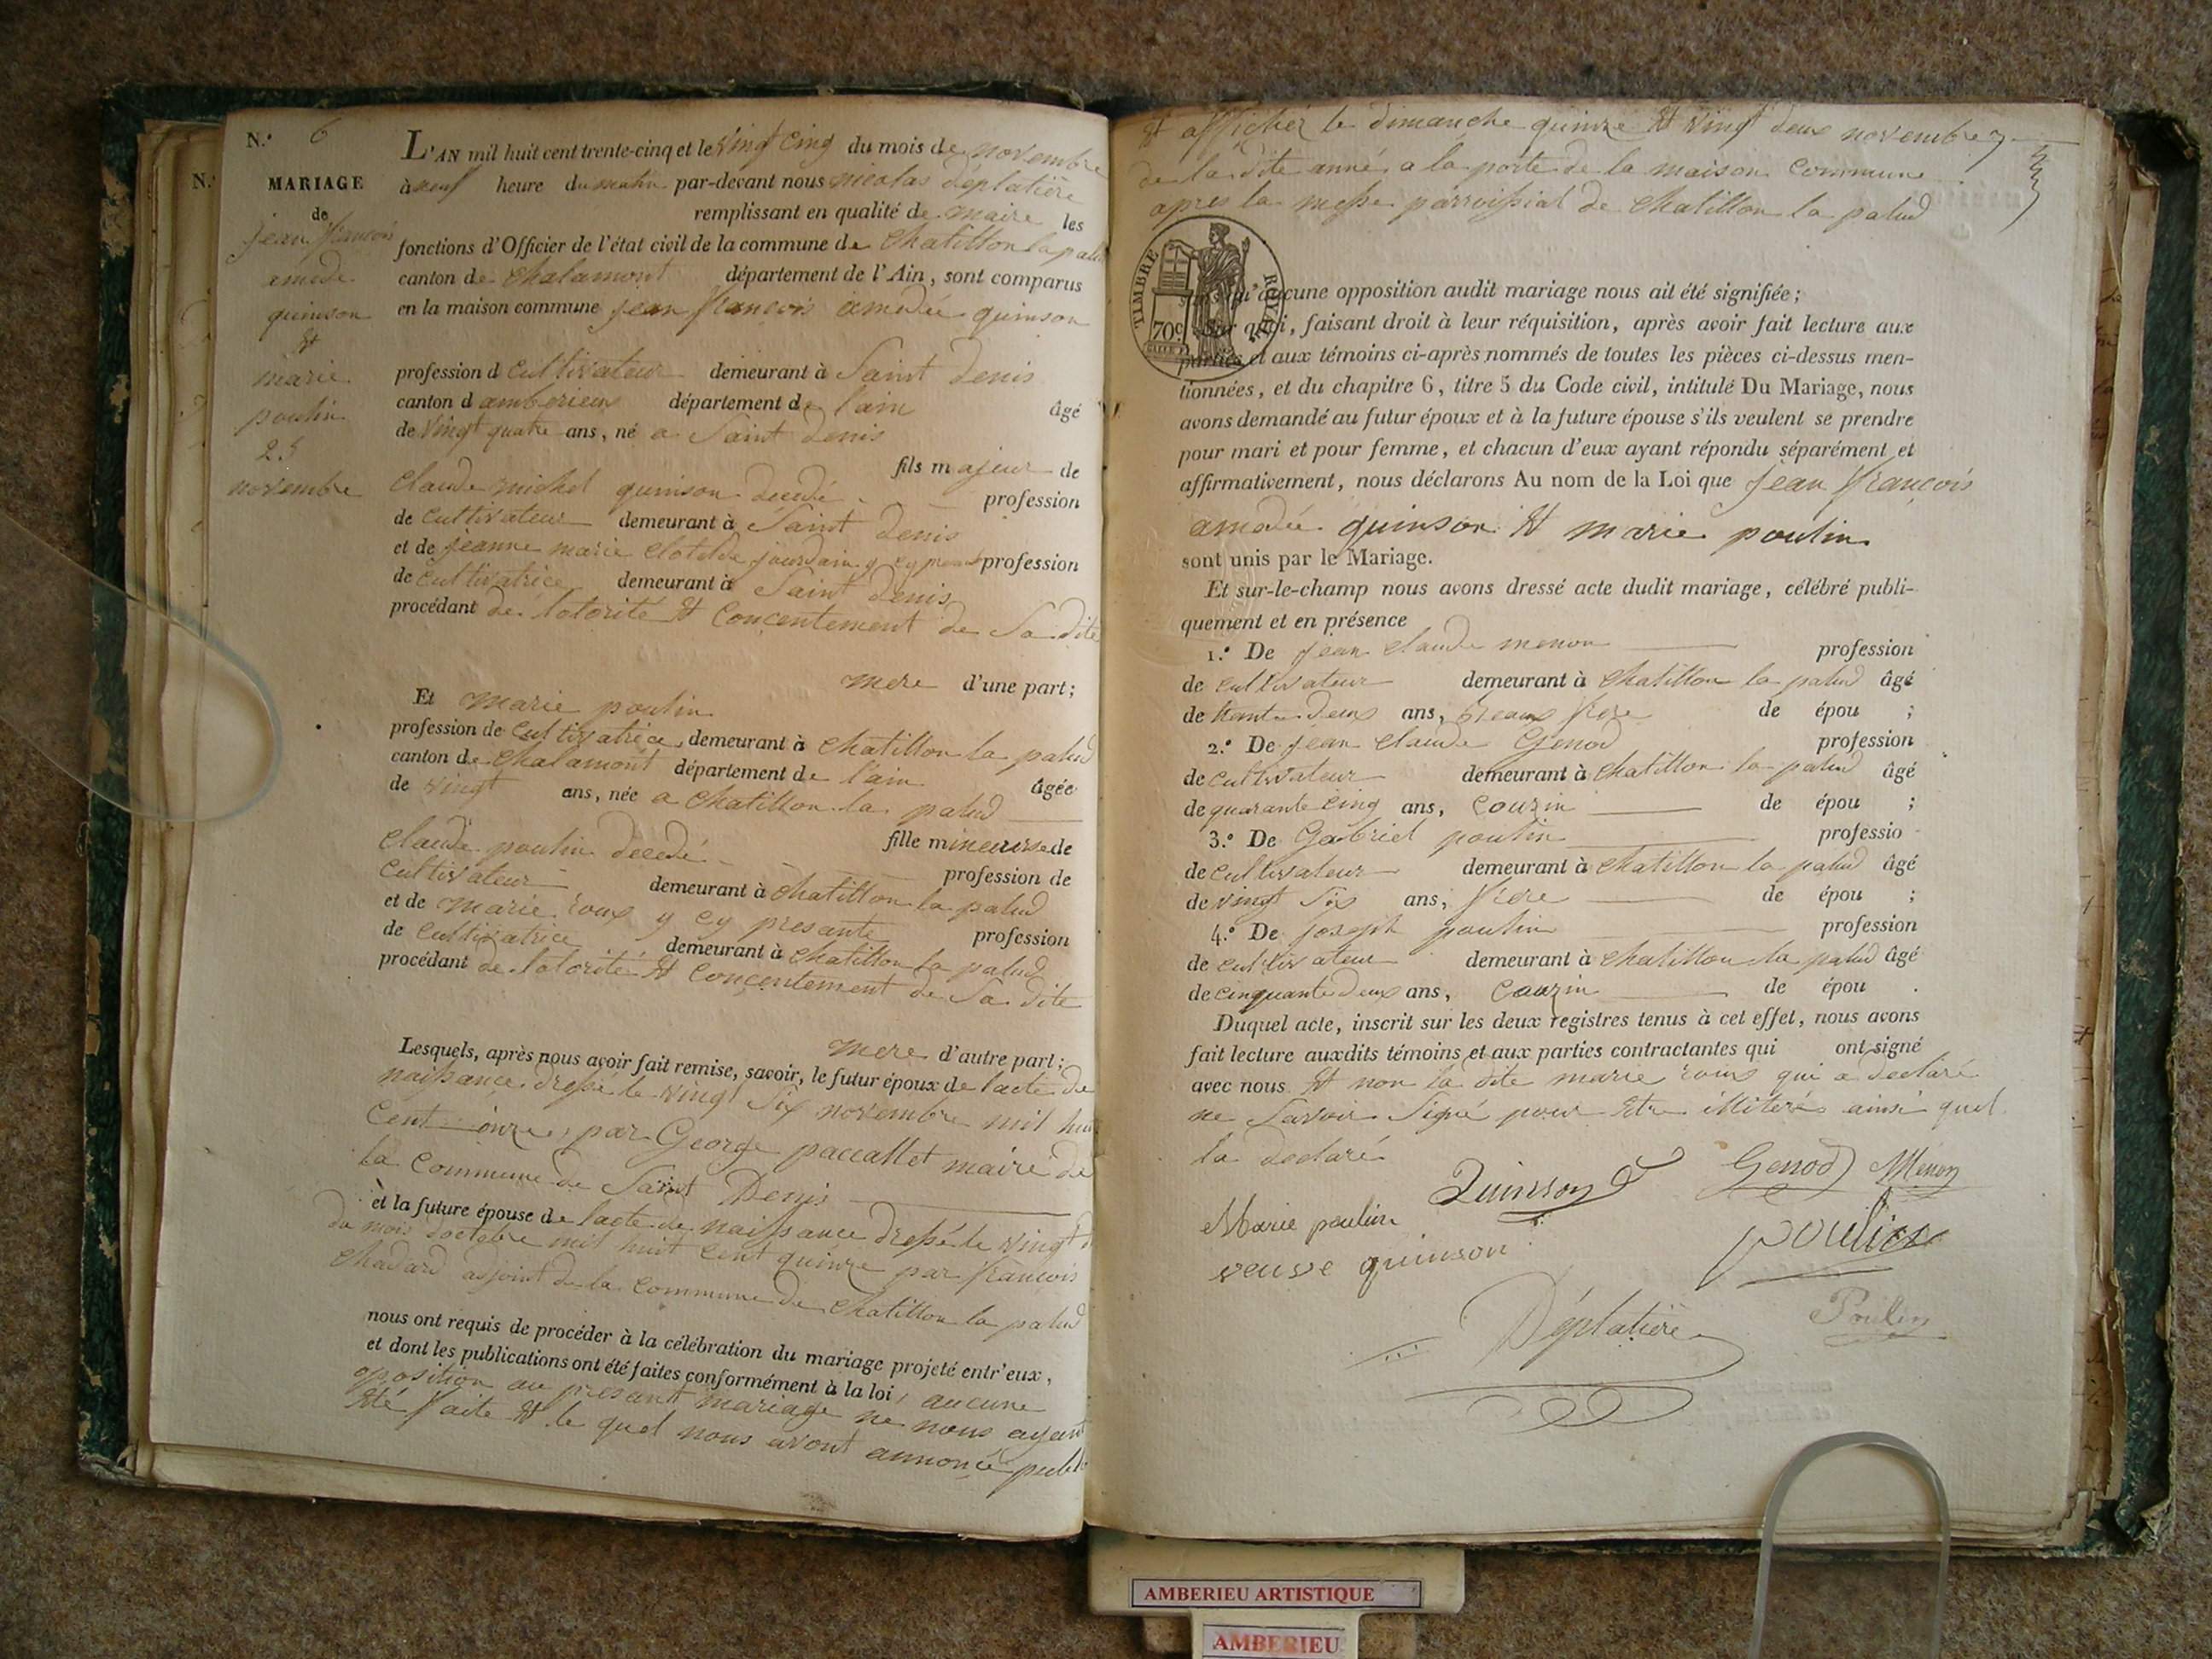 N.º 6
MARIAGE
de
jean françois
amede
quinson
et
marie
poulin
25
novembre
N.
L'AN mil huit cent trente-cinq et le vingt cinq du mois de novembre
à neuf heure du matin par-devant nous nicolas déplatière
remplissant en qualité de maire les
fonctions d'Officier de l'état civil de la commune de Chatillon la palud
canton de Chalamont département de l'Ain, sont comparus
en la maison commune jean françois amedée quinson
profession d cultivateur demeurant à Saint denis
canton d amberieux département de l'ain âgé
de vingt quatre ans, né a Saint denis
fils majeur de
Claude michel quinson decedé profession
de cultivateur demeurant à Saint denis
et de jeanne marie Clotilde jourdain y cy presante profession
de cultivatrice demeurant à Saint denis
procédant de lotorite et concentement de Sa dite
mere d'une part;
Et marie poulin
profession de cultivatrice demeurant à chatillon la palud
canton de chalamont département de l'ain âgée
de vingt ans, née a chatillon la palud
fille mineurse de
Claude poulin decedé profession de
cultivateur demeurant à chatillon la palud
et de marie roux y cy presante profession
de cultivatrice demeurant à chatillon la palud
procédant de lotorité et concentement de Sa dite
mere d'autre part;
Lesquels, après nous avoir fait remise, savoir, le futur époux de lacte de
naissance dressé le vingt six novembre mil huit
cent onze par George paccallet maire de
la commune de Saint Denis
et la future épouse de lacte de naissance dressé le vingt
du mois doctobre mil huit cent quinze par françois
Chadard asjoint de la commune de chatillon la palud
nous ont requis de procéder à la célébration du mariage projeté entr'eux,
et dont les publications ont été faites conformément à la loi, aucune
oposition au presant mariage ne nous ayant
été faite et le quel nous avont annoncé publié
et affiché le dimanche quinze et vingt deux novembre
de la dite année a la porte de la maison commune
apres la messe parroissial de chatillon la palud
TIMBRE ROYAL
70 c.
sans qu'aucune opposition audit mariage nous ait été signifiée;
Sur quoi, faisant droit à leur réquisition, après avoir fait lecture aux
parties et aux témoins ci-après nommés de toutes les pièces ci-dessus men-
tionnées, et du chapitre 6, titre 5 du Code civil, intitulé Du Mariage, nous
avons demandé au futur époux et à la future épouse s'ils veulent se prendre
pour mari et pour femme, et chacun d'eux ayant répondu séparément et
affirmativement, nous déclarons Au nom de la Loi que jean françois
amedée quinson et marie poulin
sont unis par le Mariage.
Et sur-le-champ nous avons dressé acte dudit mariage, célébré publi-
quement et en présence
1.º De jean claude menon profession
de cultivateur demeurant à chatillon la palud âgé
de trente deux ans, beaux frere de épou ;
2.º De jean claude Genod profession
de cultivateur demeurant à chatillon la palud âgé
de quarante cinq ans, couzin de épou ;
3.º De Gabriel poulin professio
de cultivateur demeurant à chatillon la palud âgé
de vingt six ans, frere de épou ;
4.º De joseph poulin profession
de cultivateur demeurant à chatillon la palud âgé
de cinquante deux ans, couzin de épou .
Duquel acte, inscrit sur les deux registres tenus à cet effet, nous avons
fait lecture auxdits témoins et aux parties contractantes qui ont signé
avec nous et non la dite marie roux qui a declaré
ne Savoir Signé pour etre illiteré ainsi quel
la declaré
Quinson Genod Menon
Marie poulin
poulin
veuve quinson
Déplatière
Poulin
AMBERIEU ARTISTIQUE
AMBERIEU